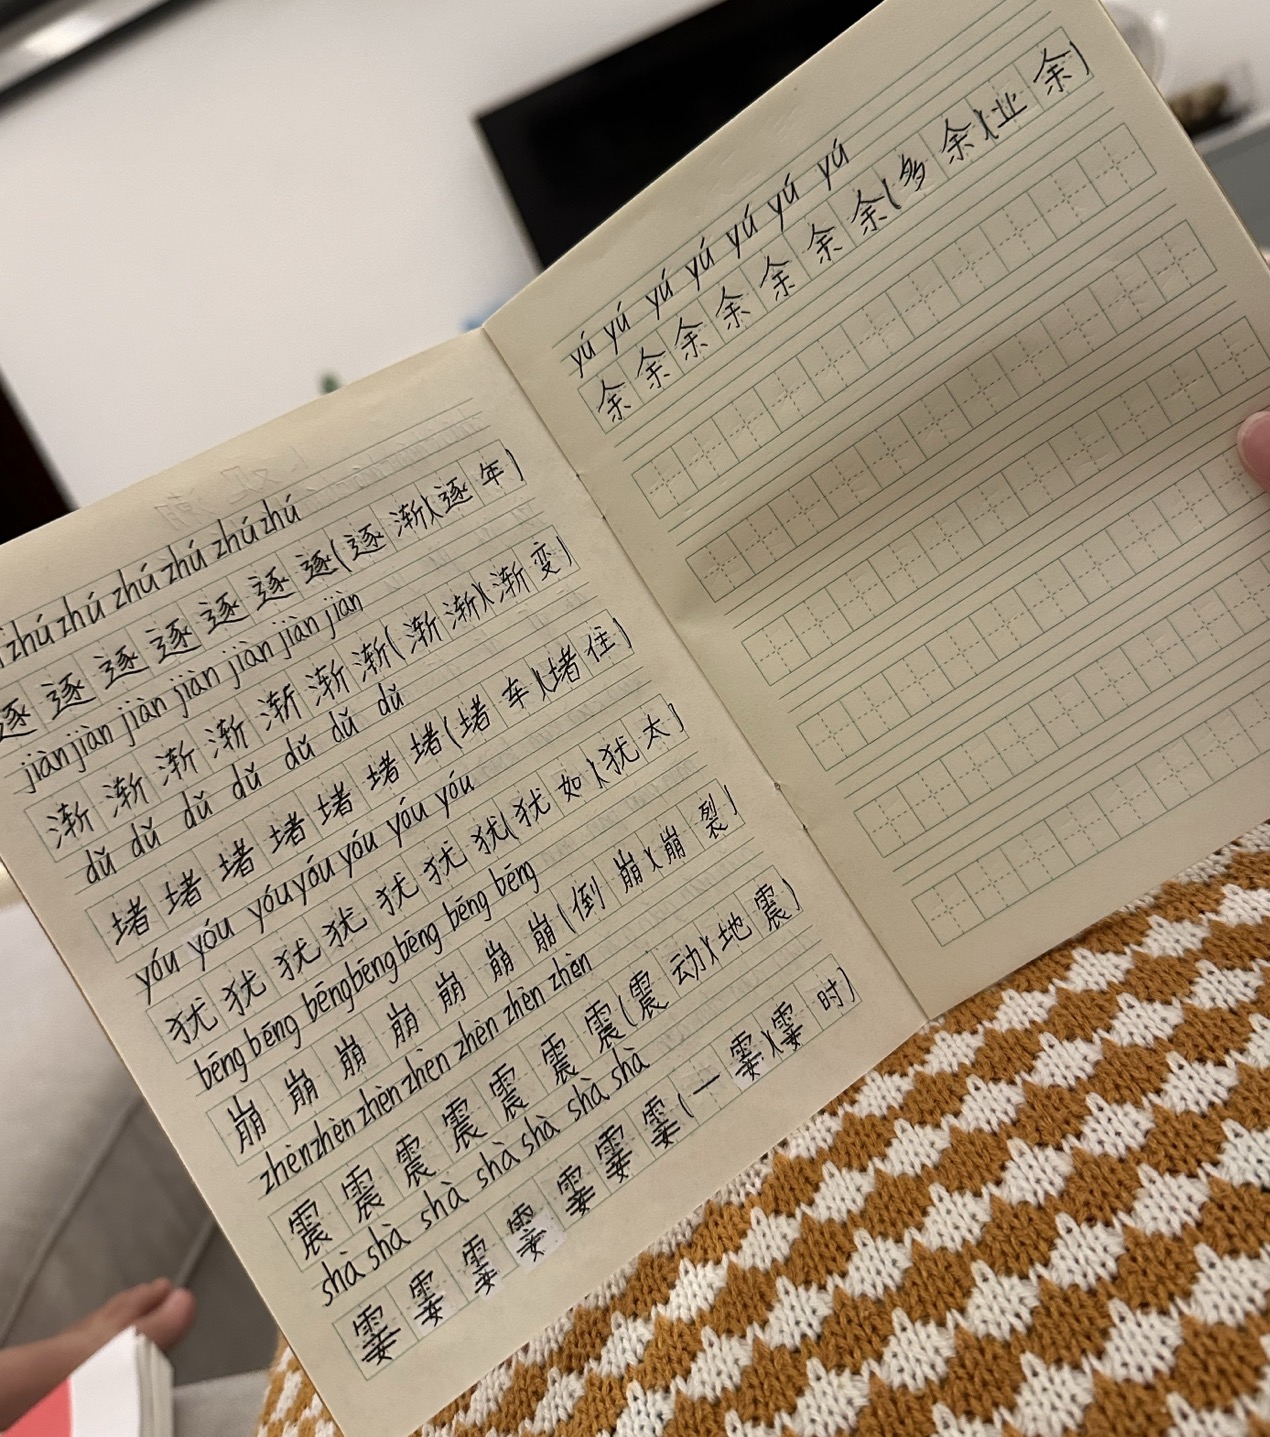 zhú zhú zhú zhú zhú zhú zhú
逐 逐 逐 逐 逐 逐 逐(逐 渐)(逐 年)
jiàn jiàn jiàn jiàn jiàn jiàn jiàn
渐 渐 渐 渐 渐 渐 渐(渐 渐)(渐 变)
dǔ dǔ dǔ dǔ dǔ dǔ dǔ
堵 堵 堵 堵 堵 堵 堵(堵 车)(堵 住)
yóu yóu yóu yóu yóu yóu yóu
犹 犹 犹 犹 犹 犹 犹(犹 如)(犹 太)
bēng bēng bēng bēng bēng bēng bēng
崩 崩 崩 崩 崩 崩 崩(倒 崩)(崩 裂)
zhèn zhèn zhèn zhèn zhèn zhèn zhèn
震 震 震 震 震 震 震(震 动)(地 震)
shà shà shà shà shà shà shà
霎 霎 霎 霎 霎 霎 霎(一 霎)(霎 时)
yú yú yú yú yú yú yú
余 余 余 余 余 余 余(多 余)(业 余)